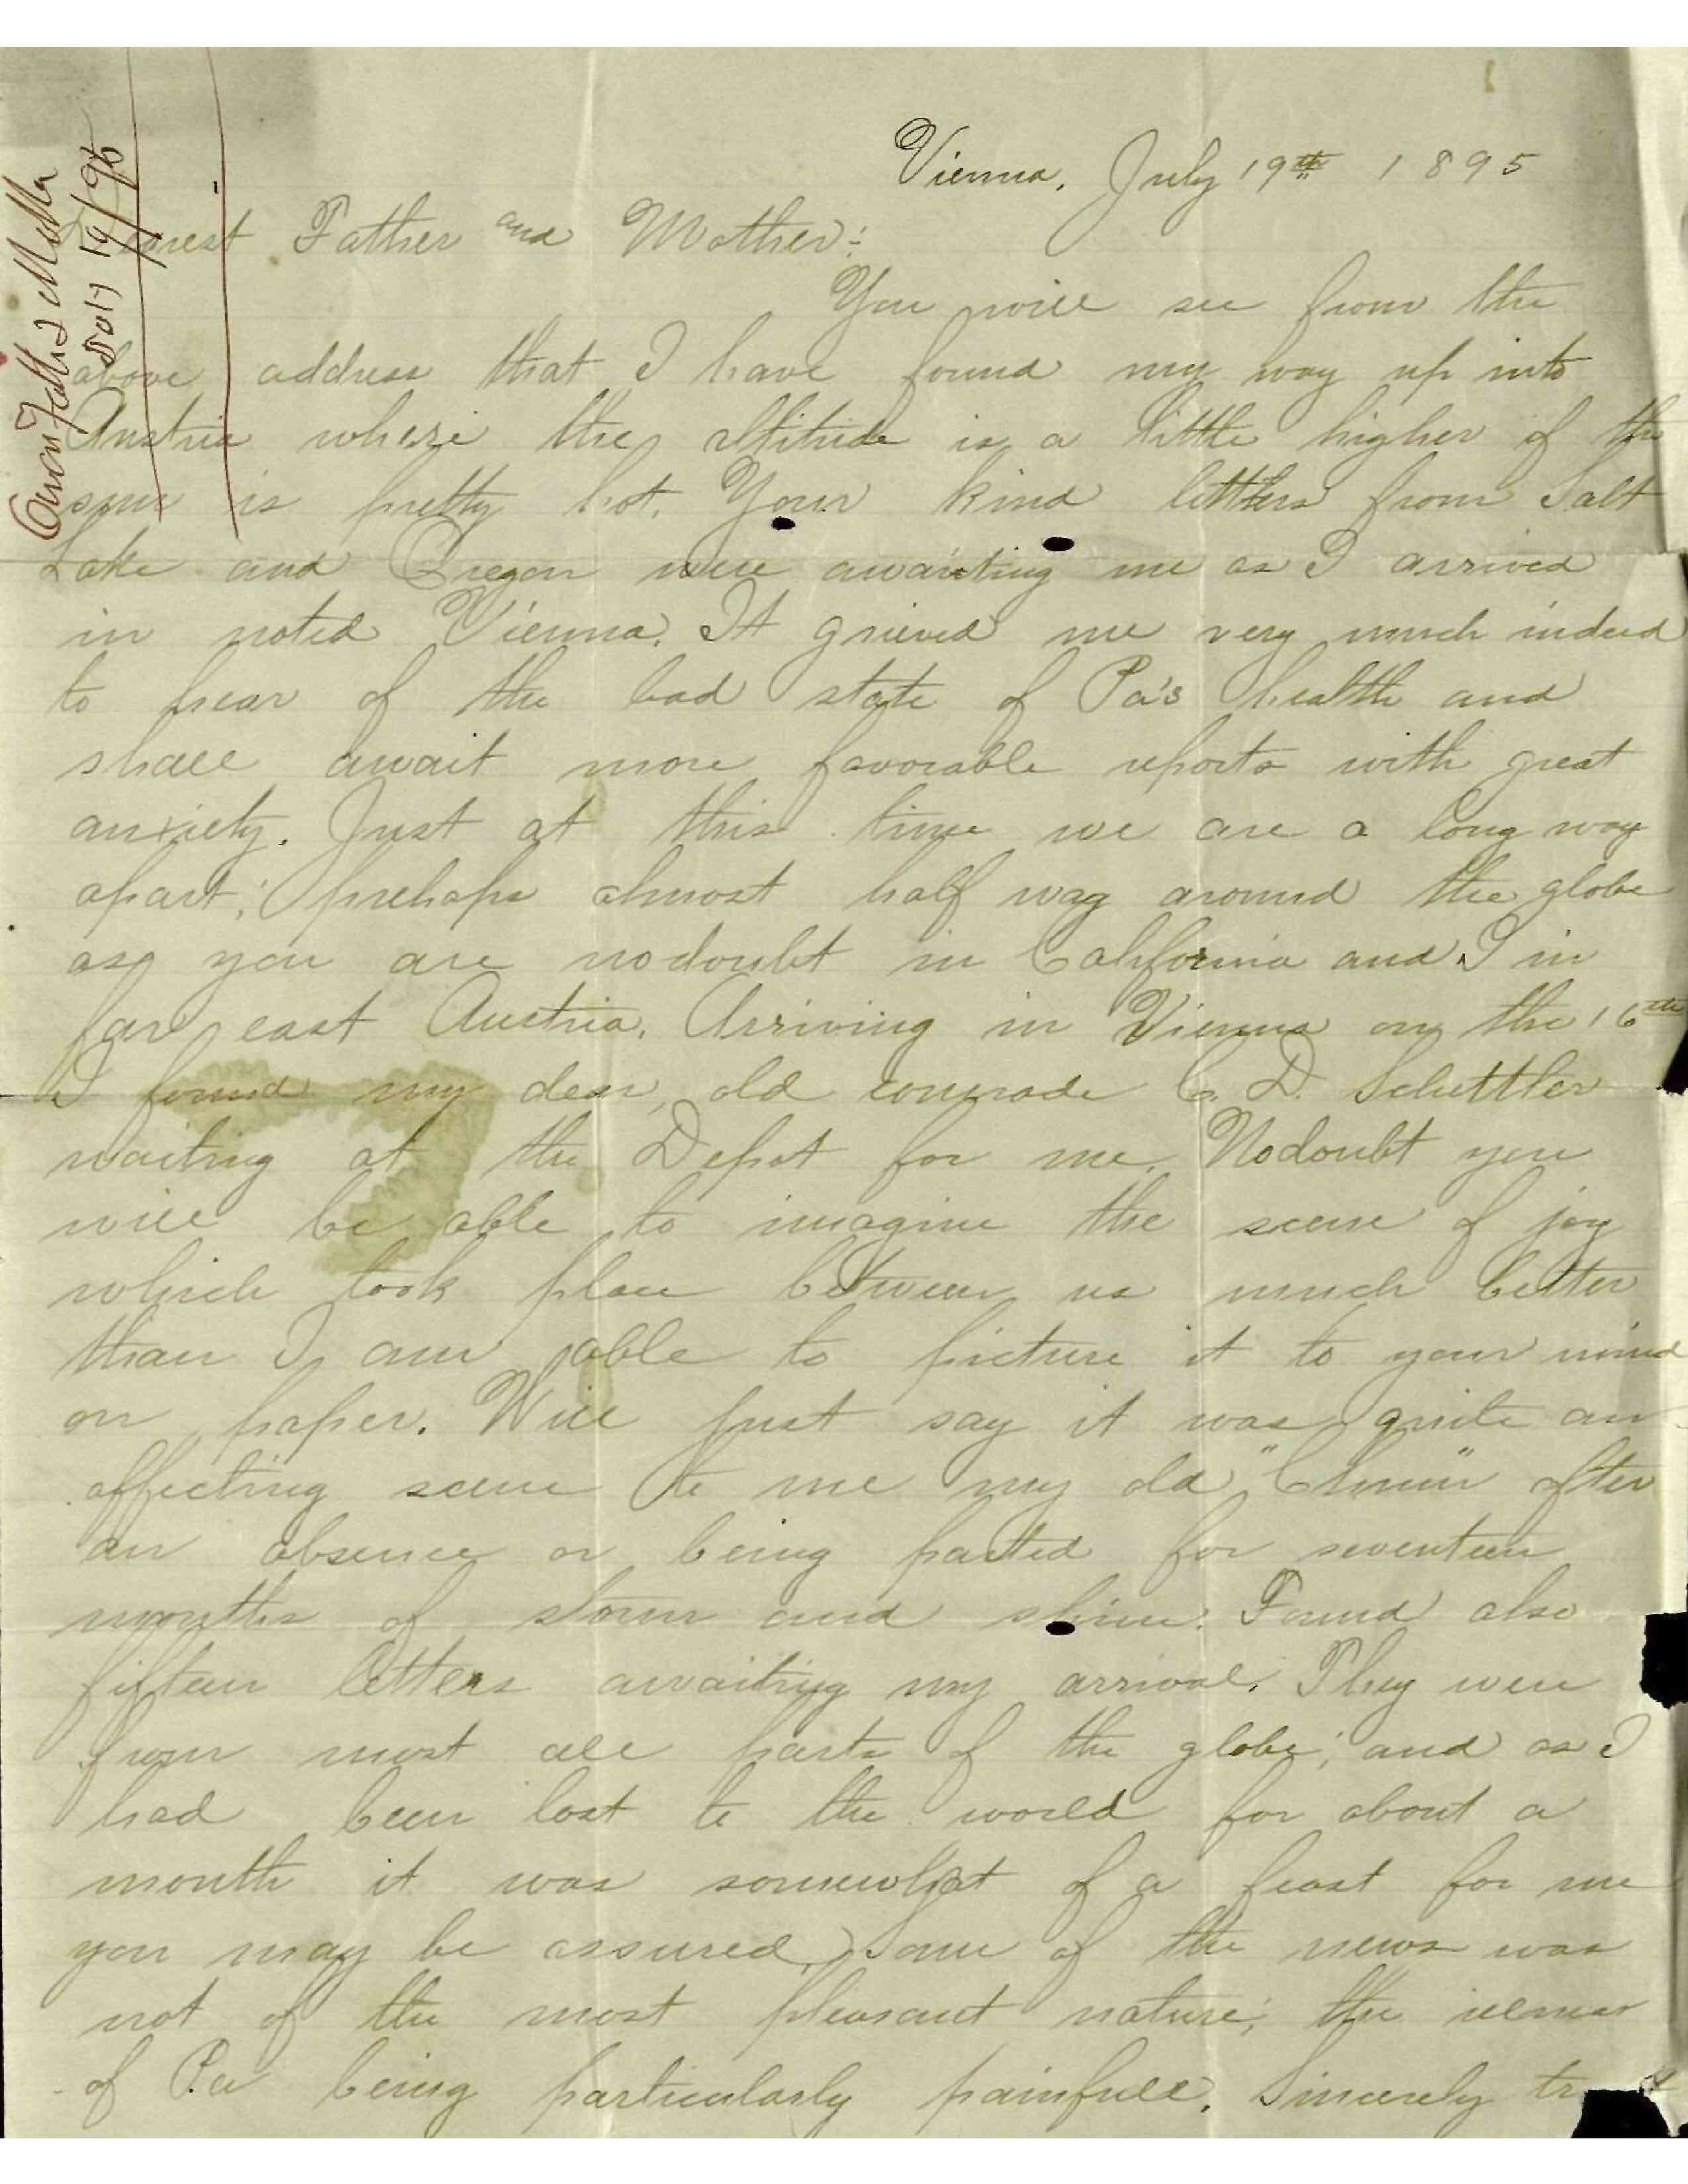 Vienna, July 19th 1895
Dearest Father and Mother:
You will see from the
above address that I have found my way up into
Austria where the altitude is a little higher if the
sun is pretty hot. Your kind letters from Salt
Lake and Oregon were awaiting me as I arrived
in noted Vienna. It grieved me very much indeed
to hear of the bad state of Pa's health and
shall await more favorable reports with great
anxiety. Just at this time we are a long way
apart; prehaps almost half way around the globe
as you are nodoubt in California and I in
far east Austria. Arriving in Vienna on the 16th
I found my dear, old comrade C. D. Schettler
waiting at the Depot for me. Nodoubt you
will be able to imagine the scene of joy
which took place between us much better
than I am able to picture it to your mind
on paper. Will just say it was quite an
affecting scene to me my old "Chum" after
an absence or being parted for seventeen
months of storm and shine. Found also
fifteen letters awaiting my arrival. They were
from most all parts of the globe; and as I
had been lost to the world for about a
month it was somewhat of a feast for me
you may be assured. Some of the news was
not of the most pleasant nature; the
of Pa being particularly painfull. Sincerely
Father & Mother
July 19/95